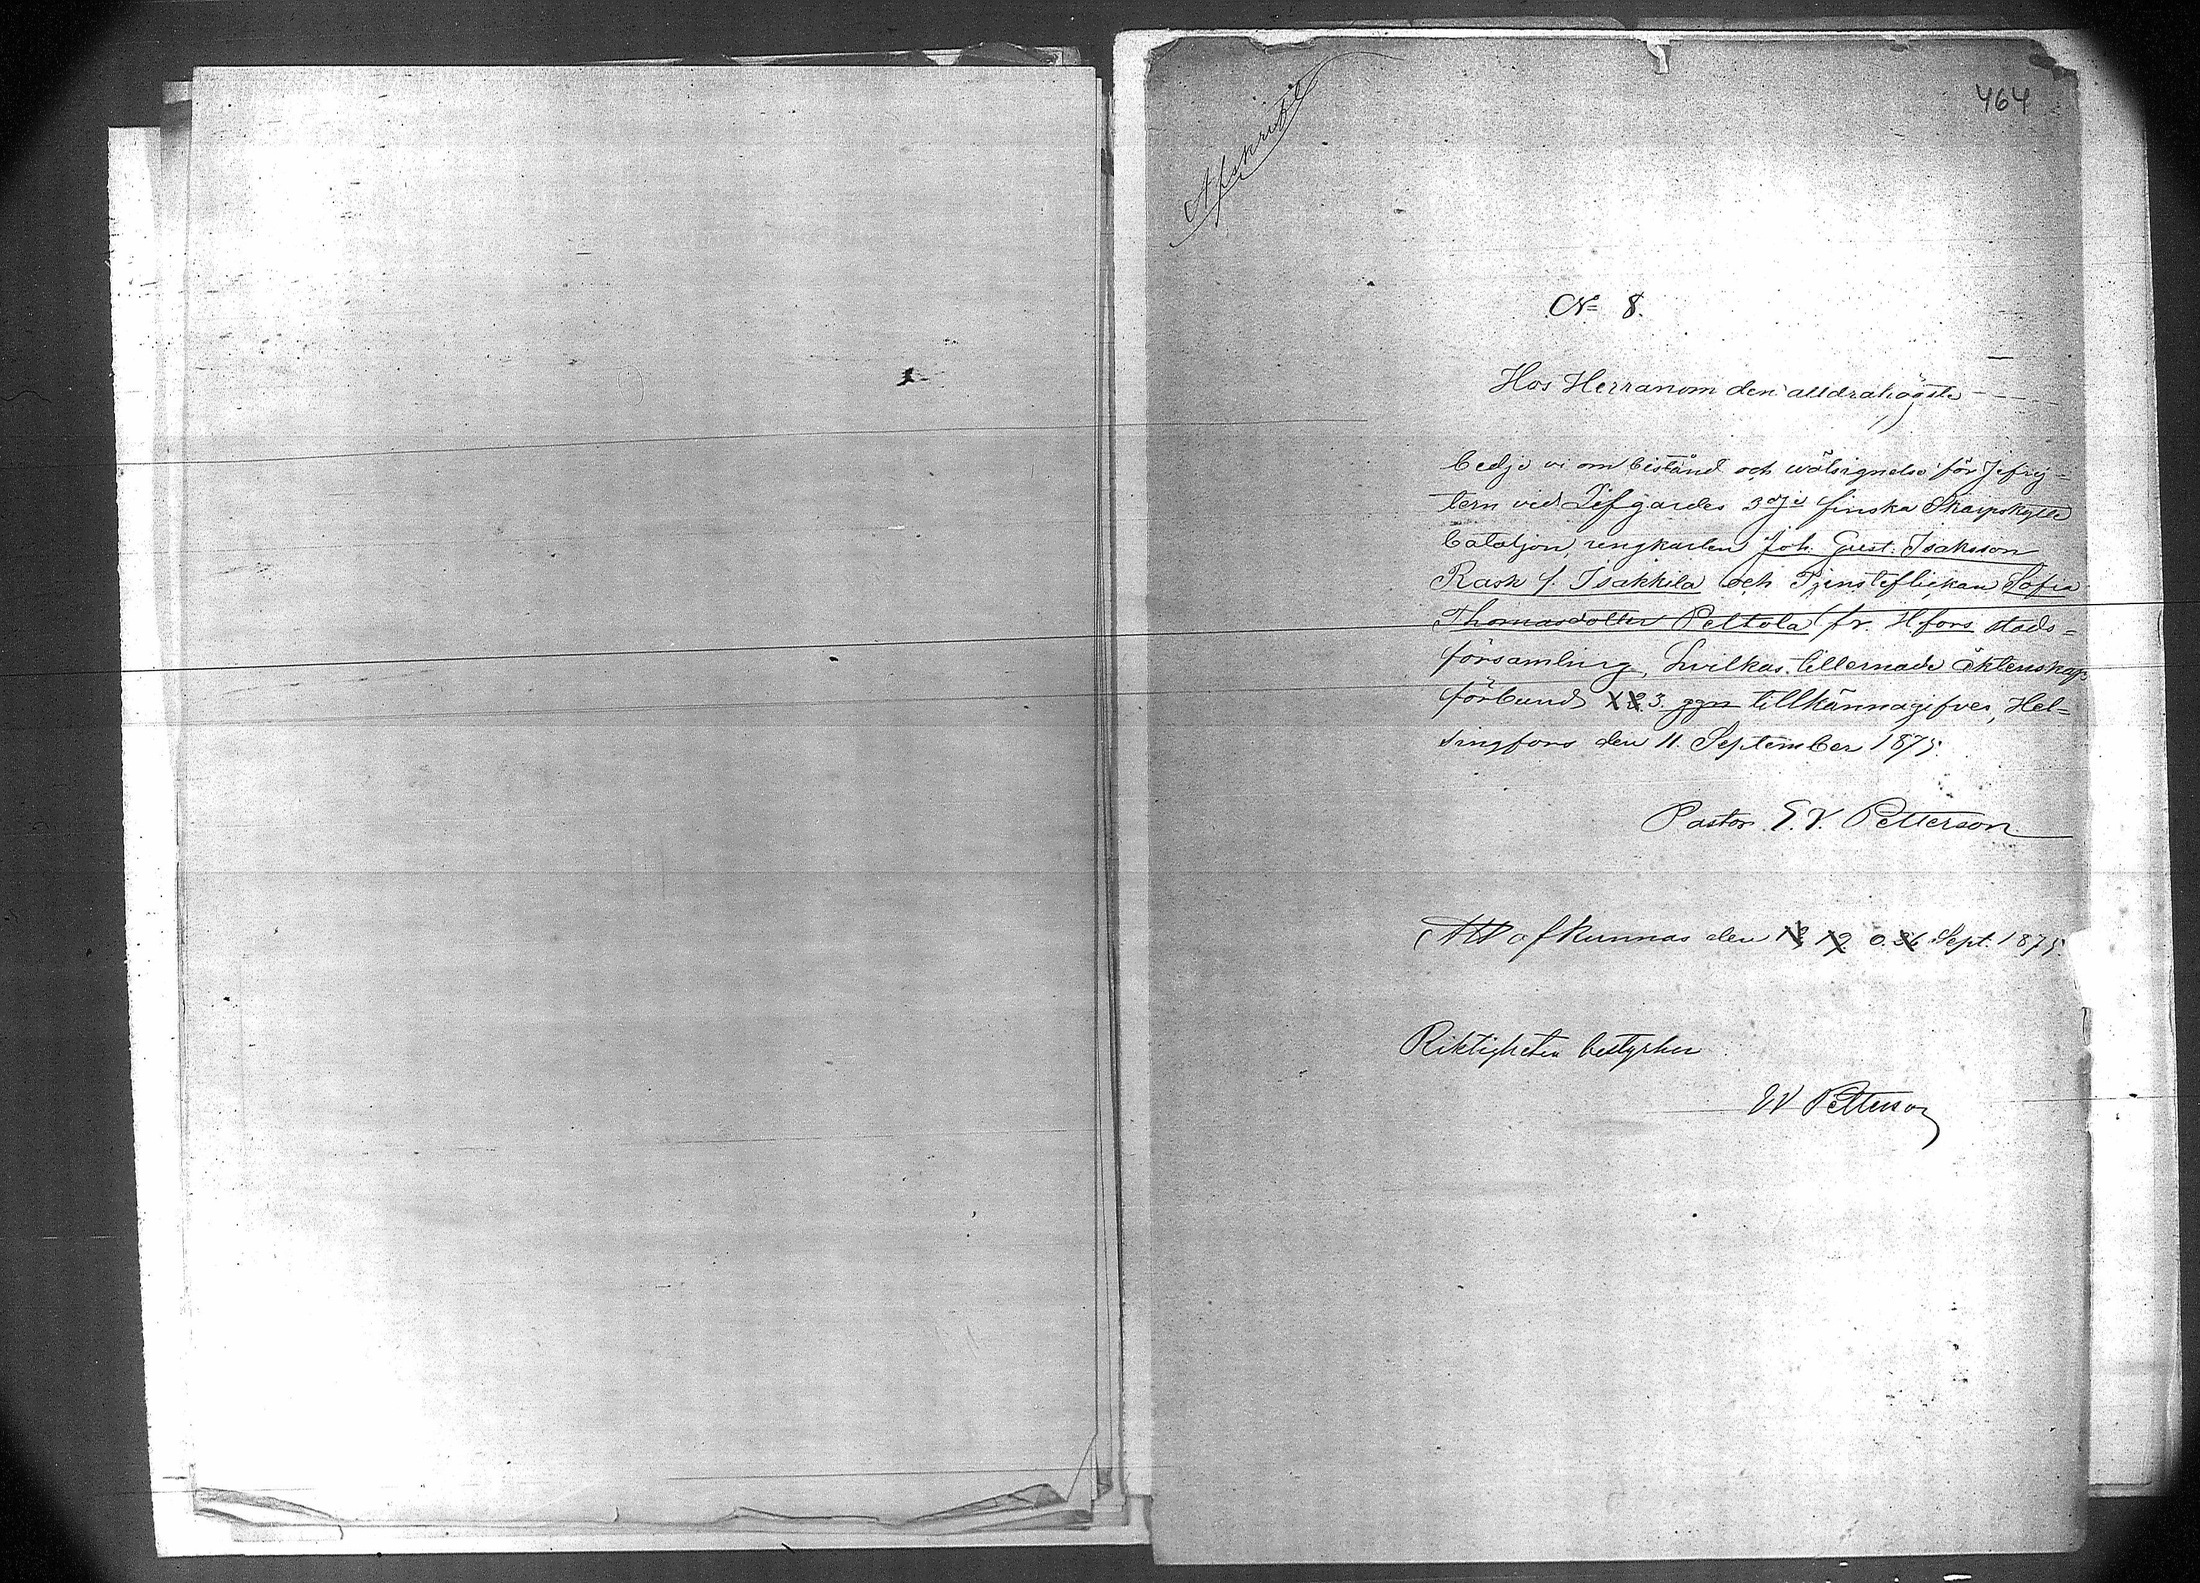 464
Afskrift
No 8.
Hos Herranom den alldrahögste
bedje vi om bistånd och wälsignelse för Jefrej-
tern vid Lifgardes 3dje finska Skarpskytte
bataljon, ungkarlen Joh. Gust. Isaksson
Rask f. Isakkila och Tjensteflickan Sofia
Thomasdotter Peltola fr. Hfors stads-
församling, hvilkas tillernade äktenskaps
förbund 3. ggn tillkännagifves, Hel-
singfors den 11. September 1875.
Pastor E. V. Petterson
Att afkunnas den 12 19 o. 26 Sept. 1875.
Riktigheten bestyrker
E V Petterson